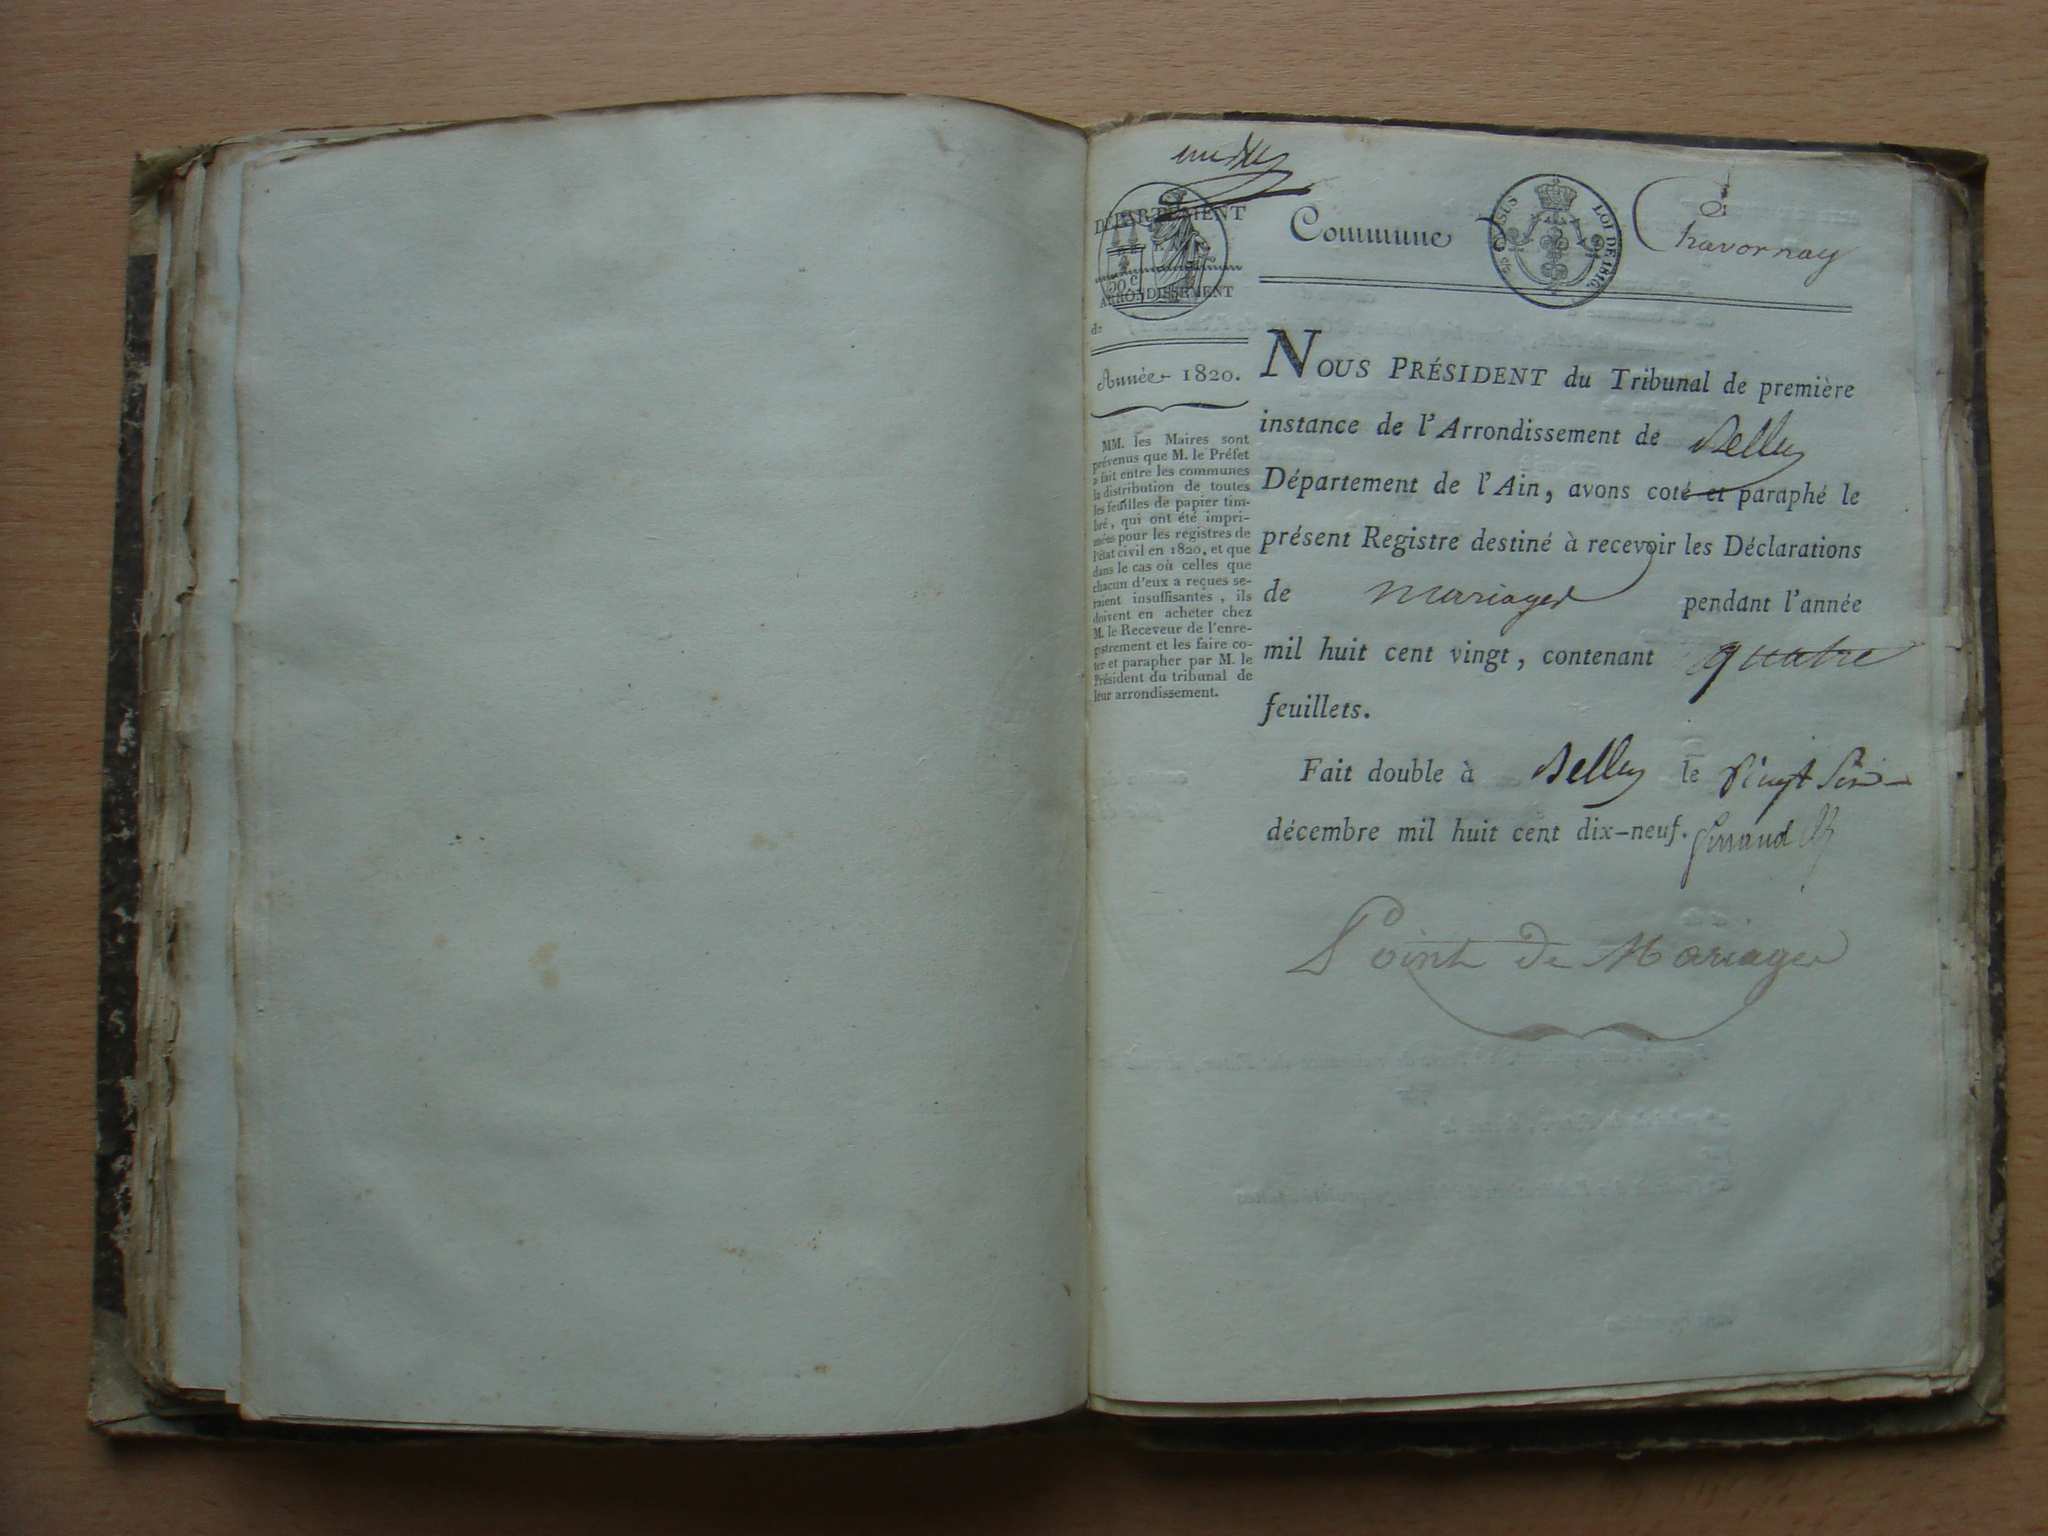 DÉPARTEMENT
20 c
ARRONDISSEMENT
de
Année 1820.
MM. les Maires sont
prévenus que M. le Préfet
a fait entre les communes
la distribution de toutes
les feuilles de papier tim-
bré, qui ont été impri-
mées pour les registres de
l'état civil en 1820, et que
dans le cas où celles que
chacun d'eux a reçues se-
raient insuffisantes, ils
doivent en acheter chez
M. le Receveur de l'enre-
gistrement et les faire co-
ter et parapher par M. le
Président du tribunal de
leur arrondissement.
Commune Chavornay
LOI DE 1816.
NOUS PRÉSIDENT du Tribunal de première
instance de l'Arrondissement de Belley
Département de l'Ain, avons coté et paraphé le
présent Registre destiné à recevoir les Déclarations
de mariages pendant l'année
mil huit cent vingt, contenant quatre
feuillets.
Fait double à Belley le Vingt Six
décembre mil huit cent dix-neuf.
Point de Mariages